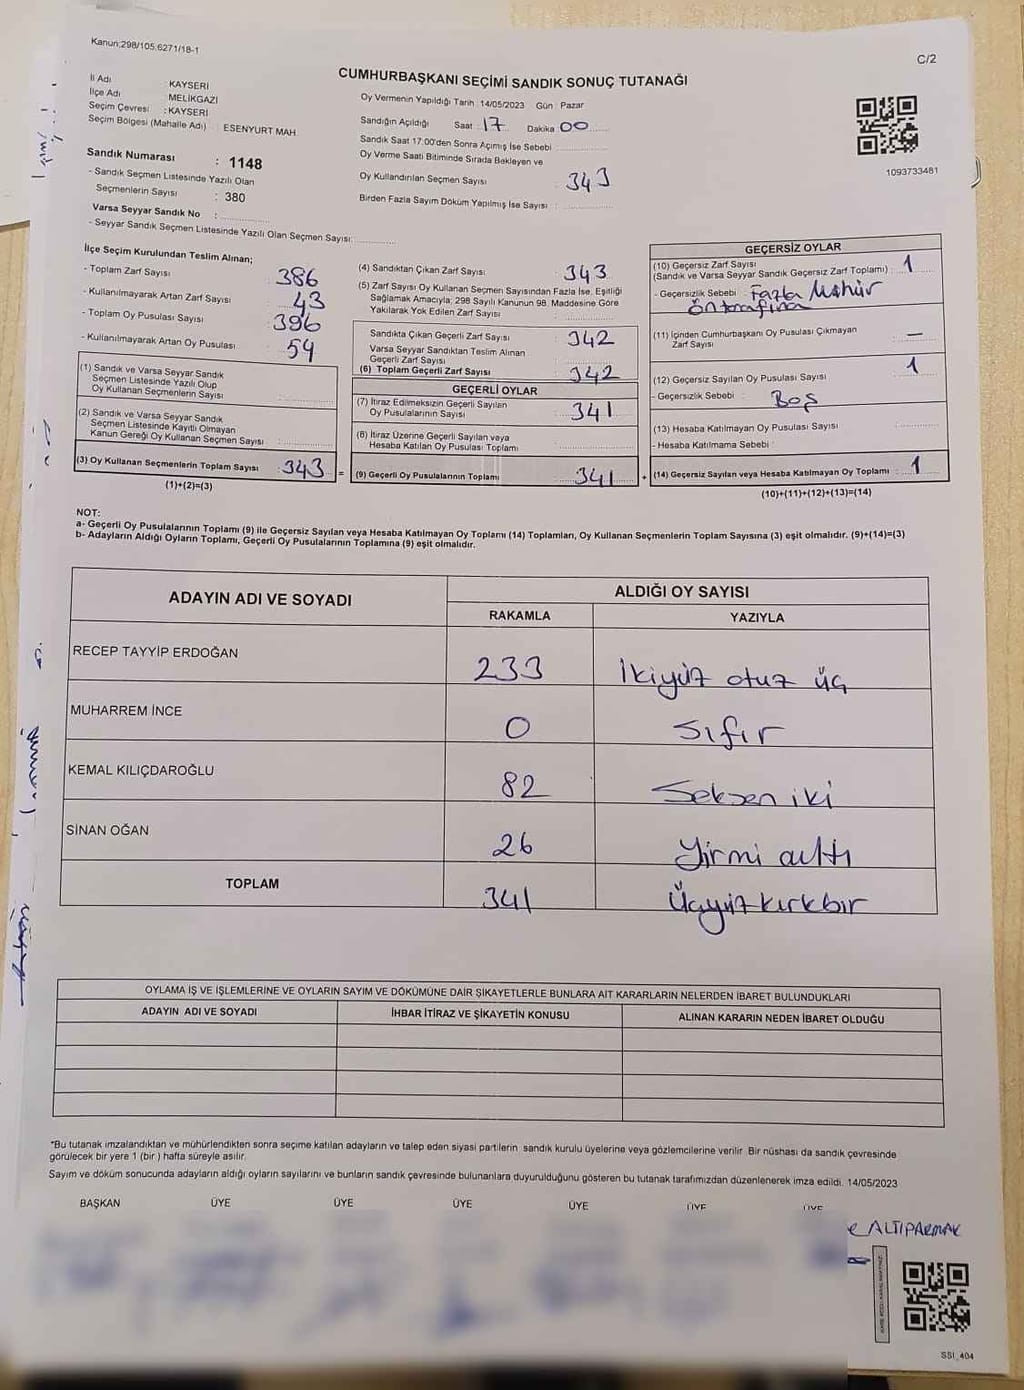 Kanun:298/105,6271/18-1
C/2
CUMHURBAŞKANI SEÇİMİ SANDIK SONUÇ TUTANAĞI
İl Adı : KAYSERİ
İlçe Adı : MELİKGAZİ
Seçim Çevresi : KAYSERİ
Seçim Bölgesi (Mahalle Adı) : ESENYURT MAH.
Sandık Numarası : 1148
- Sandık Seçmen Listesinde Yazılı Olan
Seçmenlerin Sayısı : 380
Varsa Seyyar Sandık No :
- Seyyar Sandık Seçmen Listesinde Yazılı Olan Seçmen Sayısı:
Oy Vermenin Yapıldığı Tarih : 14/05/2023 Gün : Pazar
Sandığın Açıldığı Saat : 17 Dakika 00
Sandık Saat 17:00'den Sonra Açımış İse Sebebi :
Oy Verme Saati Bitiminde Sırada Bekleyen ve
Oy Kullandırılan Seçmen Sayısı : 343
Birden Fazla Sayım Döküm Yapılmış İse Sayısı :
1093733481
İlçe Seçim Kurulundan Teslim Alınan;
- Toplam Zarf Sayısı : 386
- Kullanılmayarak Artan Zarf Sayısı : 43
- Toplam Oy Pusulası Sayısı : 396
- Kullanılmayarak Artan Oy Pusulası : 54
(1) Sandık ve Varsa Seyyar Sandık
Seçmen Listesinde Yazılı Olup
Oy Kullanan Seçmenlerin Sayısı :
(2) Sandık ve Varsa Seyyar Sandık
Seçmen Listesinde Kayıtlı Olmayan
Kanun Gereği Oy Kullanan Seçmen Sayısı :
(3) Oy Kullanan Seçmenlerin Toplam Sayısı : 343 =
(1)+(2)=(3)
(4) Sandıktan Çıkan Zarf Sayısı : 343
(5) Zarf Sayısı Oy Kullanan Seçmen Sayısından Fazla İse, Eşitliği
Sağlamak Amacıyla; 298 Sayılı Kanunun 98. Maddesine Göre
Yakılarak Yok Edilen Zarf Sayısı :
Sandıkta Çıkan Geçerli Zarf Sayısı : 342
Varsa Seyyar Sandıktan Teslim Alınan
Geçerli Zarf Sayısı
(6) Toplam Geçerli Zarf Sayısı : 342
GEÇERLİ OYLAR
(7) İtiraz Edilmeksizin Geçerli Sayılan
Oy Pusulalarının Sayısı : 341
(8) İtiraz Üzerine Geçerli Sayılan veya
Hesaba Katılan Oy Pusulası Toplamı :
(9) Geçerli Oy Pusulalarının Toplamı : 341 +
GEÇERSİZ OYLAR
(10) Geçersiz Zarf Sayısı
(Sandık ve Varsa Seyyar Sandık Geçersiz Zarf Toplamı) : 1
- Geçersizlik Sebebi : Fazla Mühür
ön tarafına
(11) İçinden Cumhurbaşkanı Oy Pusulası Çıkmayan
Zarf Sayısı : —
(12) Geçersiz Sayılan Oy Pusulası Sayısı : 1
- Geçersizlik Sebebi : Boş
(13) Hesaba Katılmayan Oy Pusulası Sayısı :
- Hesaba Katılmama Sebebi :
(14) Geçersiz Sayılan veya Hesaba Katılmayan Oy Toplamı : 1
(10)+(11)+(12)+(13)=(14)
NOT:
a- Geçerli Oy Pusulalarının Toplamı (9) ile Geçersiz Sayılan veya Hesaba Katılmayan Oy Toplamı (14) Toplamları, Oy Kullanan Seçmenlerin Toplam Sayısına (3) eşit olmalıdır. (9)+(14)=(3)
b- Adayların Aldığı Oyların Toplamı, Geçerli Oy Pusulalarının Toplamına (9) eşit olmalıdır.
ADAYIN ADI VE SOYADI
ALDIĞI OY SAYISI
RAKAMLA YAZIYLA
RECEP TAYYİP ERDOĞAN 233 İkiyüz otuz üç
MUHARREM İNCE 0 Sıfır
KEMAL KILIÇDAROĞLU 82 Seksen iki
SİNAN OĞAN 26 Yirmi altı
TOPLAM 341 Üçyüz kırkbir
OYLAMA İŞ VE İŞLEMLERİNE VE OYLARIN SAYIM VE DÖKÜMÜNE DAİR ŞİKAYETLERLE BUNLARA AİT KARARLARIN NELERDEN İBARET BULUNDUKLARI
ADAYIN ADI VE SOYADI İHBAR İTİRAZ VE ŞİKAYETİN KONUSU ALINAN KARARIN NEDEN İBARET OLDUĞU
*Bu tutanak imzalandıktan ve mühürlendikten sonra seçime katılan adayların ve talep eden siyasi partilerin sandık kurulu üyelerine veya gözlemcilerine verilir. Bir nüshası da sandık çevresinde
görülecek bir yere 1 (bir) hafta süreyle asılır.
Sayım ve döküm sonucunda adayların aldığı oyların sayılarını ve bunların sandık çevresinde bulunanlara duyurulduğunu gösteren bu tutanak tarafımızdan düzenlenerek imza edildi. 14/05/2023
BAŞKAN ÜYE ÜYE ÜYE ÜYE ÜYE ÜYE
ALTIPARMAK
SSI_404